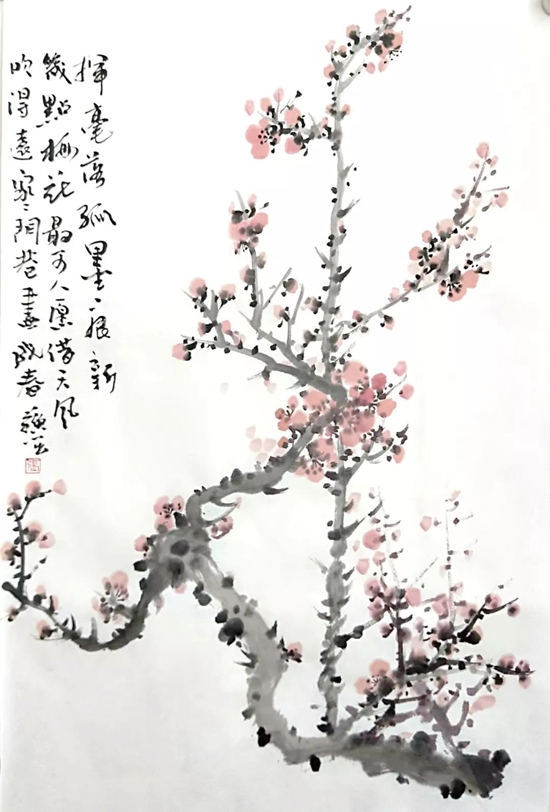 揮毫落紙墨痕新
幾點梅花最可人願借天風
吹得遠家々門巷盡成春